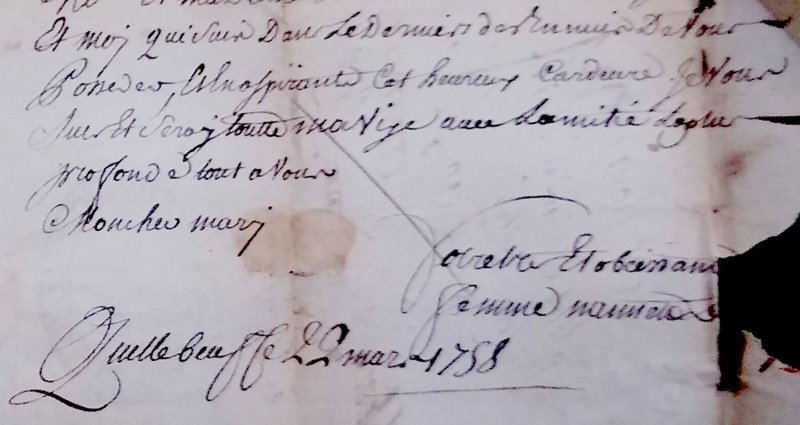 Et moj qui suis Dans Le Dernier des Ennuie De vous
Posseder, Et En aspirante Cet heureux Je vous
suis Et seraj toutte ma vije avec Lamitié Leplus
profonde tout a vous
Moncher marj
votre tre Et obeissane
femme nannette
Quillebeuffe 22 mars 1758